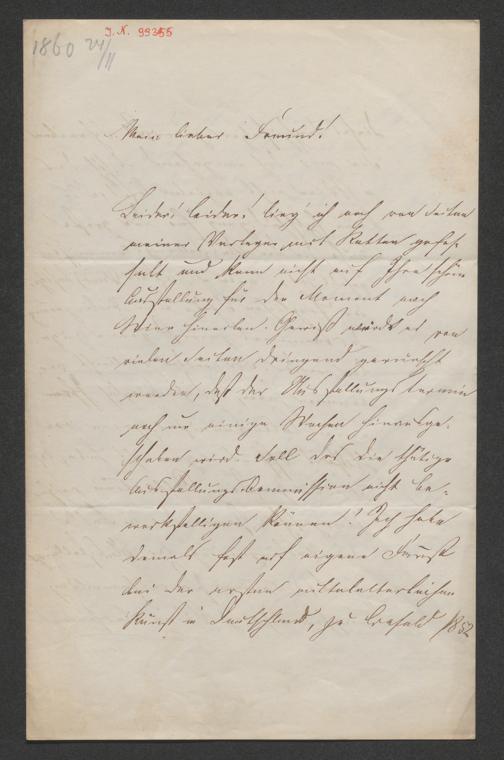 J.N. 99355
1860 24/11
Mein lieber Freund!
Leider! leider! lieg' ich noch von Seiten
meiner Verleger mit Ketten gefes-
selt und kann nicht auf Ihre schöne
Ausstellung für den Moment nach
Wien hineilen. Gewiß würde es von
vielen Seiten dringend gewünscht
werden, daß der Ausstellungstermin
noch um einige Wochen hinausge-
schoben wird. Soll das die thätige
Ausstellungs Commission nicht be-
werkstelligen können! Ich habe
damals fast auf eigene Faust
bei der ersten mittelalterlichen
Kunst in Deutschland, zu Crefeld 1852